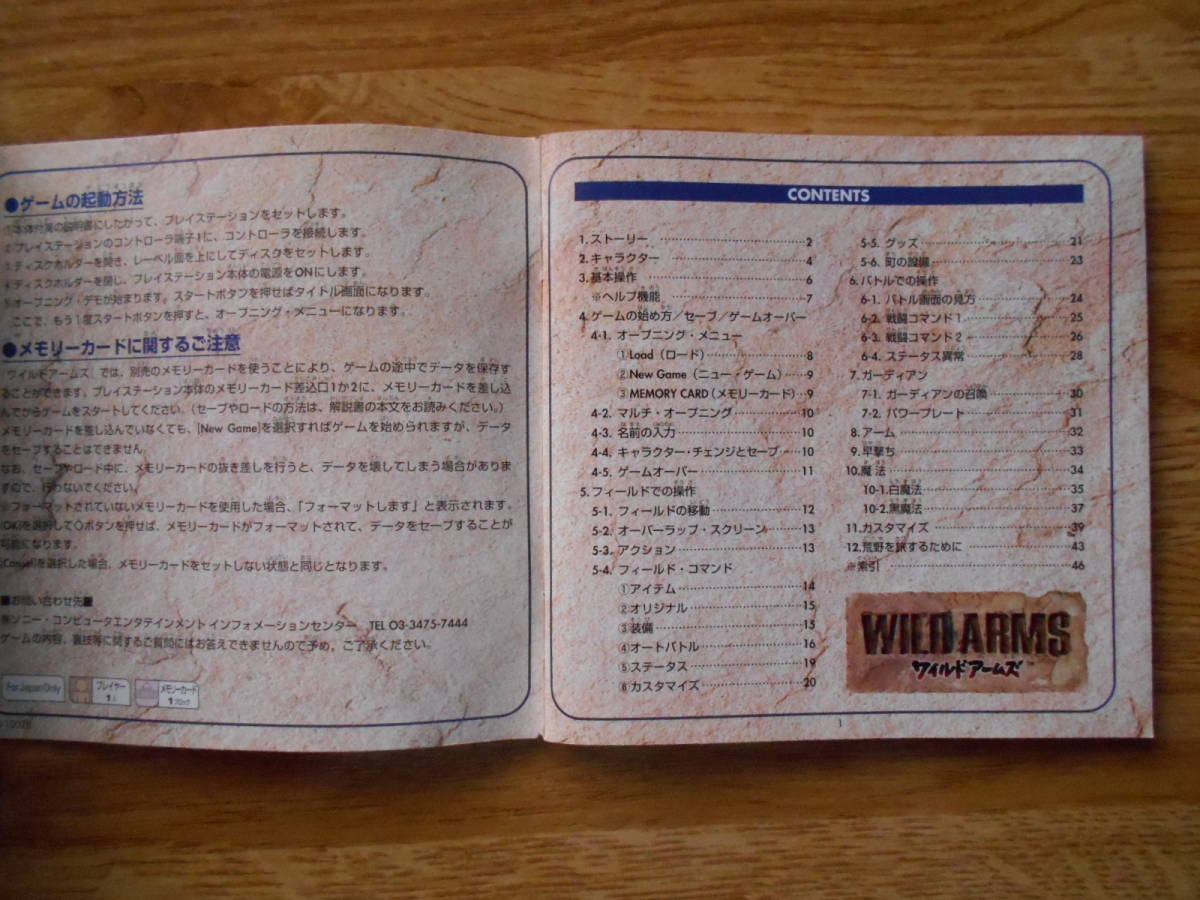 ●ゲームの起動方法
①本体付属の説明書にしたがって、プレイステーションをセットします。
②プレイステーションのコントローラ端子1に、コントローラを接続します。
③ディスクホルダーを開き、レーベル面を上にしてディスクをセットします。
④ディスクホルダーを閉じ、プレイステーション本体の電源をONにします。
⑤オープニング・デモが始まります。スタートボタンを押せばタイトル画面になります。
ここで、もう1度スタートボタンを押すと、オープニング・メニューになります。
●メモリーカードに関するご注意
「ワイルドアームズ」では、別売のメモリーカードを使うことにより、ゲームの途中でデータを保存す
ることができます。プレイステーション本体のメモリーカード差込口1か2に、メモリーカードを差し込
んでからゲームをスタートしてください。（セーブやロードの方法は、解説書の本文をお読みください。）
メモリーカードを差し込んでいなくても、[New Game]を選択すればゲームを始められますが、データ
をセーブすることはできません。
なお、セーブやロード中に、メモリーカードの抜き差しを行うと、データを壊してしまう場合がありま
すので、行わないでください。
※フォーマットされていないメモリーカードを使用した場合、「フォーマットします」と表示されます。
[OK]を選択して○ボタンを押せば、メモリーカードがフォーマットされて、データをセーブすることが
可能になります。
を選択した場合、メモリーカードをセットしない状態と同じとなります。
■お問い合わせ先■
㈱ソニー・コンピュータエンタテインメント インフォメーションセンター TEL 03-3475-7444
ゲームの内容、裏技等に関するご質問にはお答えできませんので予め、ご了承ください。
For Japan Only
プレイヤー
1人
メモリーカード
1ブロック
CONTENTS
1.ストーリー ……2
2.キャラクター ……4
3.基本操作 ……6
※ヘルプ機能 ……7
4.ゲームの始め方／セーブ／ゲームオーバー
4-1. オープニング・メニュー
①Load（ロード）……8
②New Game（ニュー・ゲーム）……9
③MEMORY CARD（メモリーカード）…9
4-2. マルチ・オープニング ……10
4-3. 名前の入力 ……10
4-4. キャラクター・チェンジとセーブ ……10
4-5. ゲームオーバー ……11
5.フィールドでの操作
5-1. フィールドの移動 ……12
5-2. オーバーラップ・スクリーン ……13
5-3. アクション ……13
5-4. フィールド・コマンド
①アイテム ……14
②オリジナル ……15
③装備 ……15
④オートバトル ……16
⑤ステータス ……19
⑥カスタマイズ ……20
5-5. グッズ ……21
5-6. 町の設備 ……23
6.バトルでの操作
6-1. バトル画面の見方 ……24
6-2. 戦闘コマンド1 ……25
6-3. 戦闘コマンド2 ……26
6-4. ステータス異常 ……28
7.ガーディアン
7-1. ガーディアンの召喚 ……30
7-2. パワープレート ……31
8.アーム ……32
9.早撃ち ……33
10.魔法 ……34
10-1.白魔法 ……35
10-2.黒魔法 ……37
11.カスタマイズ ……39
12.荒野を旅するために ……43
※索引 ……46
WILD ARMS
ワイルドアームズ™
1